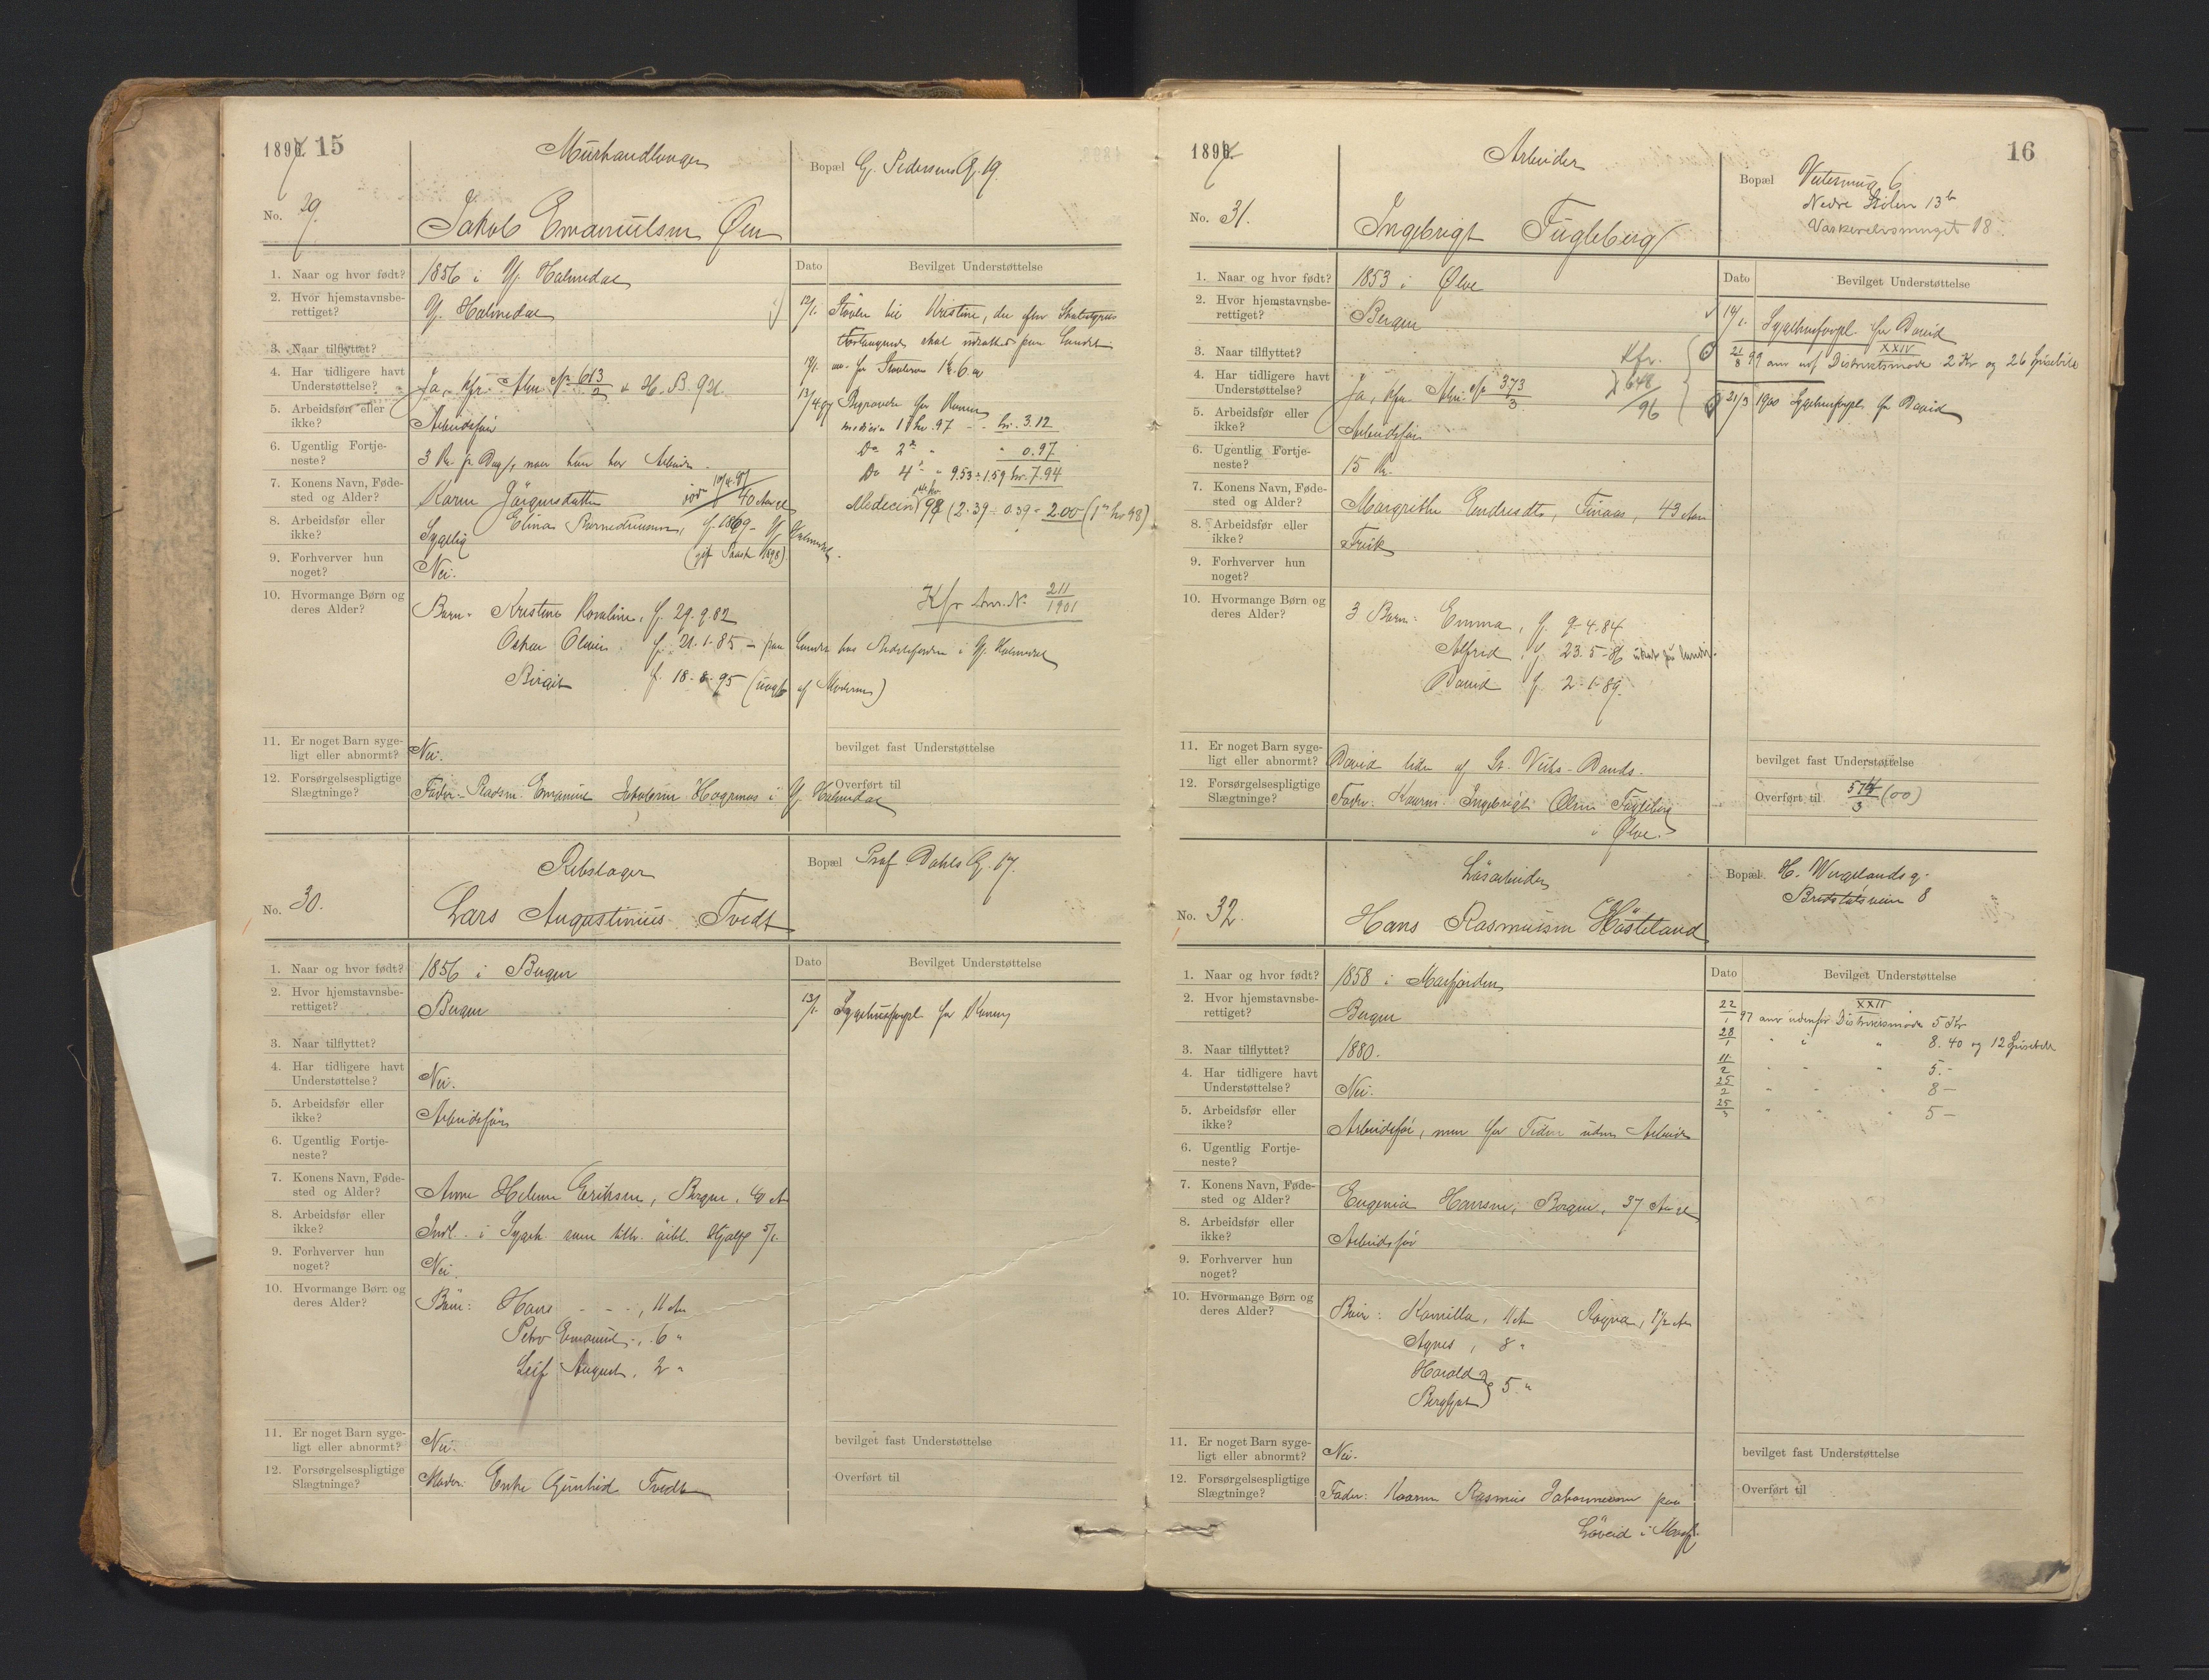 1897 15
Murhandlanger
Bopæl G. Pedersens G. 19
No. 29.
Jakob Emanuelsen Øen
1. Naar og hvor født? 1856 i Y. Holmedal
Dato Bevilget Understøttelse
2. Hvor hjemstavnsberettiget? Y. Holmedal
12/1. Støvler til Kristine, der efter
Forlangende skal udsættes paa Landet
3. Naar tilflyttet?
19/1. for Støvlerne Kr. 6.00
4. Har tidligere havt Understøttelse? Ja, kfr. Alm. No 613/2 & H. B. 921.
13/4.97 Begravelse for Konen
5. Arbeidsfør eller ikke? Arbeidsfør
medicin 1ste kv. 97 - - kr. 3.12
Do 2det " " 0.97
6. Ugentlig Fortjeneste? 3 Kr. pr. Dag, naar han har Arbeide.
Do 4de " 9.53 ÷ 1.59 kr. 7.94
7. Konens Navn, Fødested og Alder? Karen Jørgensdatter død 10/4.97 40 Aar
Medecin 98 (2.39 ÷ 0.39 = 2.00 (1ste kv 98)
8. Arbeidsfør eller ikke? Sygelig Elina f. 1869 - Y. Holmedal.
(gift 1898).
9. Forhverver hun noget? Nei.
Kfr Anm. No. 211/1901
10. Hvormange Børn og deres Alder? Børn: Kristine Rosaline, f. 29.9.82
Oskar Olavus, f. 21.1.85 - paa Landet hos i Y. Holmedal
Birgit f. 18-8-95 (uægte af Moderen)
11. Er noget Barn sygeligt eller abnormt? Nei.
bevilget fast Understøttelse
12. Forsørgelsespligtige Slægtninge? Fader: Pladsm. Emanuel Jakobsen i Y. Holmedal
Overført til
Rebslager
Bopæl Prof. Dahls G. 17.
No. 30.
Lars Augustinius Tvedt
1. Naar og hvor født? 1856 i Bergen
Dato Bevilget Understøttelse
2. Hvor hjemstavnsberettiget? Bergen
13/1. Sygehusforpl. for Konen
3. Naar tilflyttet?
4. Har tidligere havt Understøttelse? Nei.
5. Arbeidsfør eller ikke? Arbeidsfør
6. Ugentlig Fortjeneste?
7. Konens Navn, Fødested og Alder? Anne Helene Eriksen, Bergen, 40 A
8. Arbeidsfør eller ikke? Indl. i Sygeh. som Hjælp 5/1.
9. Forhverver hun noget? Nei.
10. Hvormange Børn og deres Alder? Børn: Hans - - -, 11 Aar
Peter Emanuel -, 6 "
Leif August, 2 "
11. Er noget Barn sygeligt eller abnormt? Nei.
bevilget fast Understøttelse
12. Forsørgelsespligtige Slægtninge? Moder: Enke Gunhild Tvedt
Overført til
1897
16
Arbeider
Bopæl 6
Nedre Stølen 13b
Vaskerelvsmuget 18
No. 31.
Ingebrigt Fugleberg
1. Naar og hvor født? 1853 i Ølve
Dato Bevilget Understøttelse
2. Hvor hjemstavnsberettiget? Bergen
14/1. Sygehusforpl. for David
3. Naar tilflyttet?
Kfr. 648/96
21/8 99 anv udf Distriktsmøde XXIV 2 Kr og 26 Spisebill
4. Har tidligere havt Understøttelse? Ja, kfr. Alm. No 373/3
21/3 1900 Sygehusforpl. for David
5. Arbeidsfør eller ikke? Arbeidsfør
6. Ugentlig Fortjeneste? 15 Kr.
7. Konens Navn, Fødested og Alder? Margrethe Endresdt, Finaas, 43 Aar
8. Arbeidsfør eller ikke? Frisk
9. Forhverver hun noget?
10. Hvormange Børn og deres Alder? 3 Børn: Emma, f. 9-4.84
Alfred, f. 23.5-86 udsat på landet.
David f. 2-1-89.
11. Er noget Barn sygeligt eller abnormt? David lider af St. Veits-Dands.
bevilget fast Understøttelse
12. Forsørgelsespligtige Slægtninge? Fader: Kaarm. Ingebrigt Olsen Fugleberg
i Ølve.
Overført til 574/3 (00)
Løsarbeider
Bopæl H. Wergelandsg.
Bredstølsveien 8
No. 32.
Hans Rasmussen Høsteland
1. Naar og hvor født? 1858 i Masfjorden
Dato Bevilget Understøttelse
2. Hvor hjemstavnsberettiget? Bergen
22/1 97 anv udenfor Distriktsmøde XXII 5 Kr
3. Naar tilflyttet? 1880.
28/1 " " " 8.40 og 12 Spisebill
11/2 " " " 5.-
4. Har tidligere havt Understøttelse? Nei.
25/2 " " " 8-
25/3 " " " 5-
5. Arbeidsfør eller ikke? Arbeidsfør, men for Tiden uden Arbeide
6. Ugentlig Fortjeneste?
7. Konens Navn, Fødested og Alder? Eugenia Hansen, Bergen, 37 Aar
8. Arbeidsfør eller ikke? Arbeidsfør
9. Forhverver hun noget?
10. Hvormange Børn og deres Alder? Børn: Kamilla, 11 Aar Ragna, 1 1/2 Aar
Agnes, 8 "
Harald og
Bergljot 5 "
11. Er noget Barn sygeligt eller abnormt? Nei.
bevilget fast Understøttelse
12. Forsørgelsespligtige Slægtninge? Fader: Kaarm Rasmus Johannessen paa
i Masfj.
Overført til